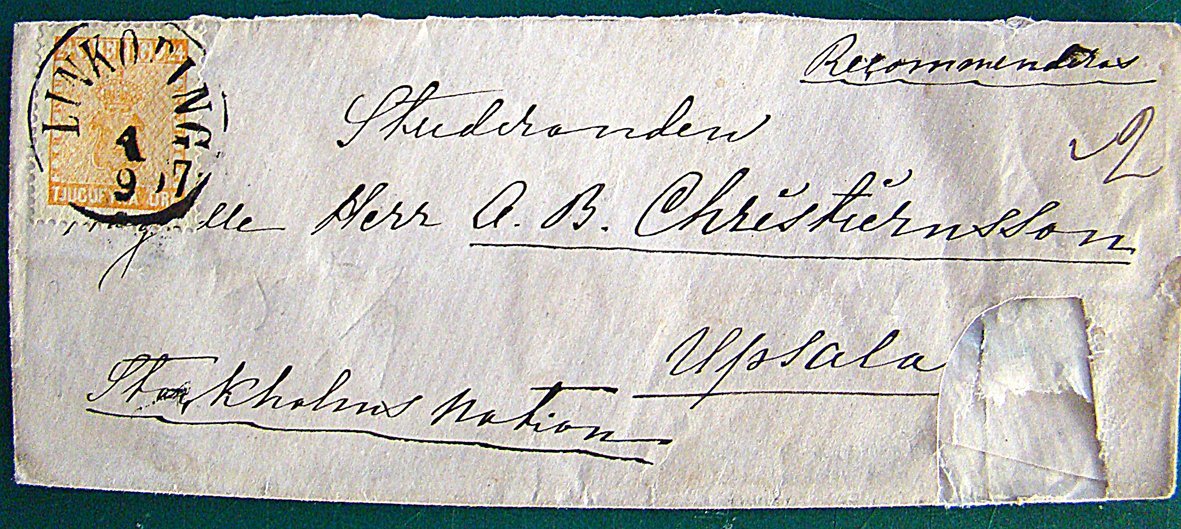 24 24
LINKÖPING
1
9 .7
TJUGUFYRA ÖR
Recommenderas
Studeranden
Herr A. B. Christiernsson
Upsala
Stockholms Nation